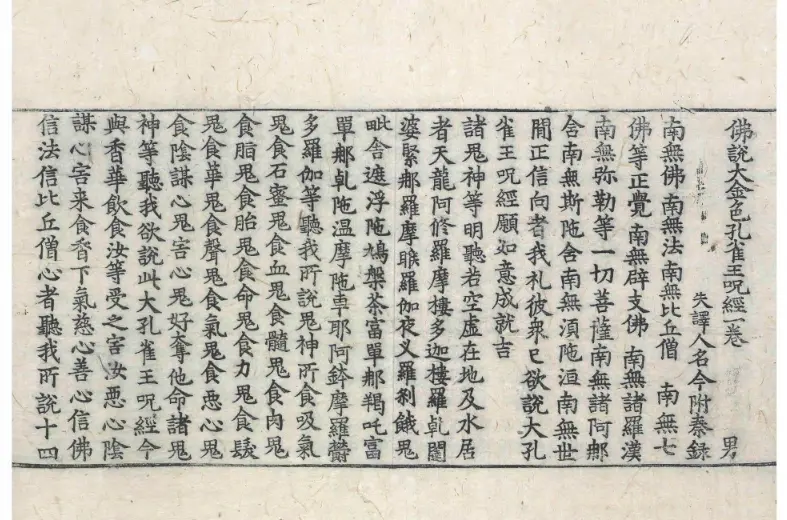 佛說大金色孔雀王呪經一卷 男
失譯人名今附秦録
南無佛南無法南無比丘僧 南無七
佛等正覺 南無辟支佛 南無諸羅漢
南無弥勒等一切菩薩南無諸阿那
含南無斯陁含南無湏陁洹南無世
間正信向者我礼彼衆已欲說大孔
雀王呪經願如意成就吉
諸鬼神等明聽若空虛在地及水居
者天龍阿修羅摩樓多迦樓羅乹闥
婆緊那羅摩睺羅伽夜叉羅刹餓鬼
毗舍遮浮陁鳩槃茶富單那羯吒富
單那乹陁温摩陁車耶阿鉢摩羅欝
多羅伽等聽我所說鬼神所食吸氣
鬼食石蜜鬼食血鬼食髓鬼食肉鬼
食脂鬼食胎鬼食命鬼食力鬼食髮
鬼食華鬼食聲鬼食氣鬼食惡心鬼
食陰謀心鬼害心鬼好奪他命諸鬼
神等聽我欲說此大孔雀王呪經今
與香華飲食汝等受之害汝惡心陰
謀心害来食香下氣慈心善心信佛
信法信比丘僧心者聽我所說十四